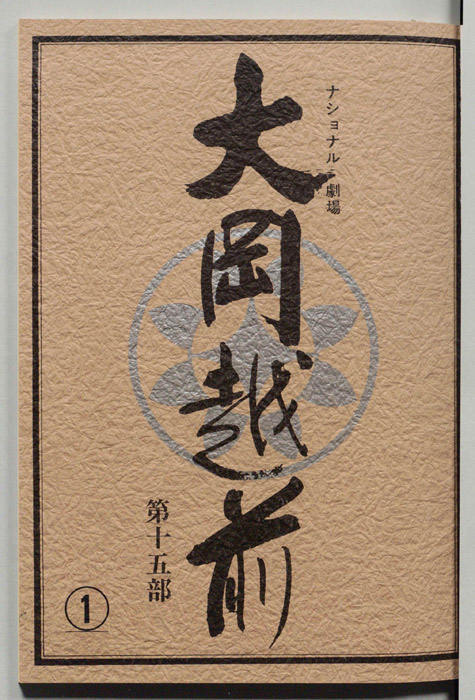 ナショナル劇場
大岡越前
第十五部
1